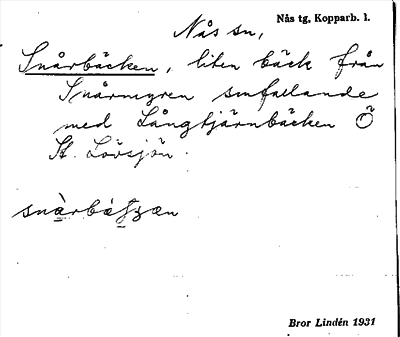 Nås sn,
Nås tg, Kopparb. l.
Snårbäcken, liten bäck från
Snårmyren smfallande
med Långtjärnbäcken Ö
St. Lövsjön.
Bror Lindén 1931